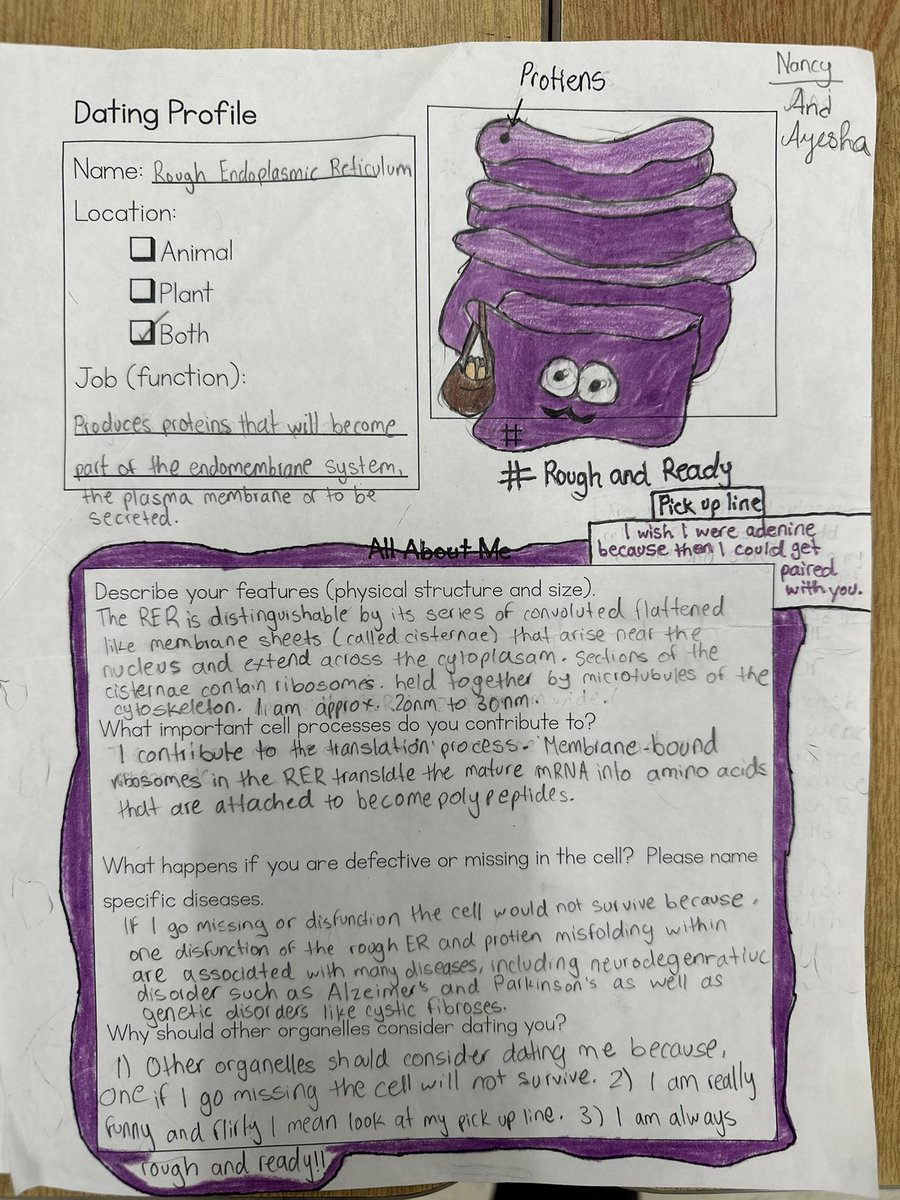 Nancy
And
Ayesha
Protiens
Dating Profile
Name: Rough Endoplasmic Reticulum
Location:
Animal
Plant
Both
Job (function):
Produces proteins that will become
part of the endomembrane system,
the plasma membrane or to be
secreted.
#
# Rough and Ready
Pick up line
I wish I were adenine
because then I could get
paired
with you.
All About Me
Describe your features (physical structure and size).
The RER is distinguishable by its series of convoluted flattened
like membrane sheets (called cisternae) that arise near the
nucleus and extend across the cytoplasam. Sections of the
cisternae contain ribosomes. held together by microtubules of the
cytoskeleton. I am approx. 20nm to 30nm.
What important cell processes do you contribute to?
I contribute to the translation process. Membrane-bound
ribosomes in the RER translate the mature mRNA into amino acids
that are attached to become polypeptides.
What happens if you are defective or missing in the cell? Please name
specific diseases.
If I go missing or disfunction the cell would not survive because,
one disfunction of the rough ER and protien misfolding within
are associated with many diseases, including neurodegenrative
disorder such as Alzeimer's and Parkinson's as well as
genetic disorders like cystic fibroses.
Why should other organelles consider dating you?
1) Other organelles should consider dating me because,
one if I go missing the cell will not survive. 2) I am really
funny and flirty I mean look at my pick up line. 3) I am always
rough and ready!!